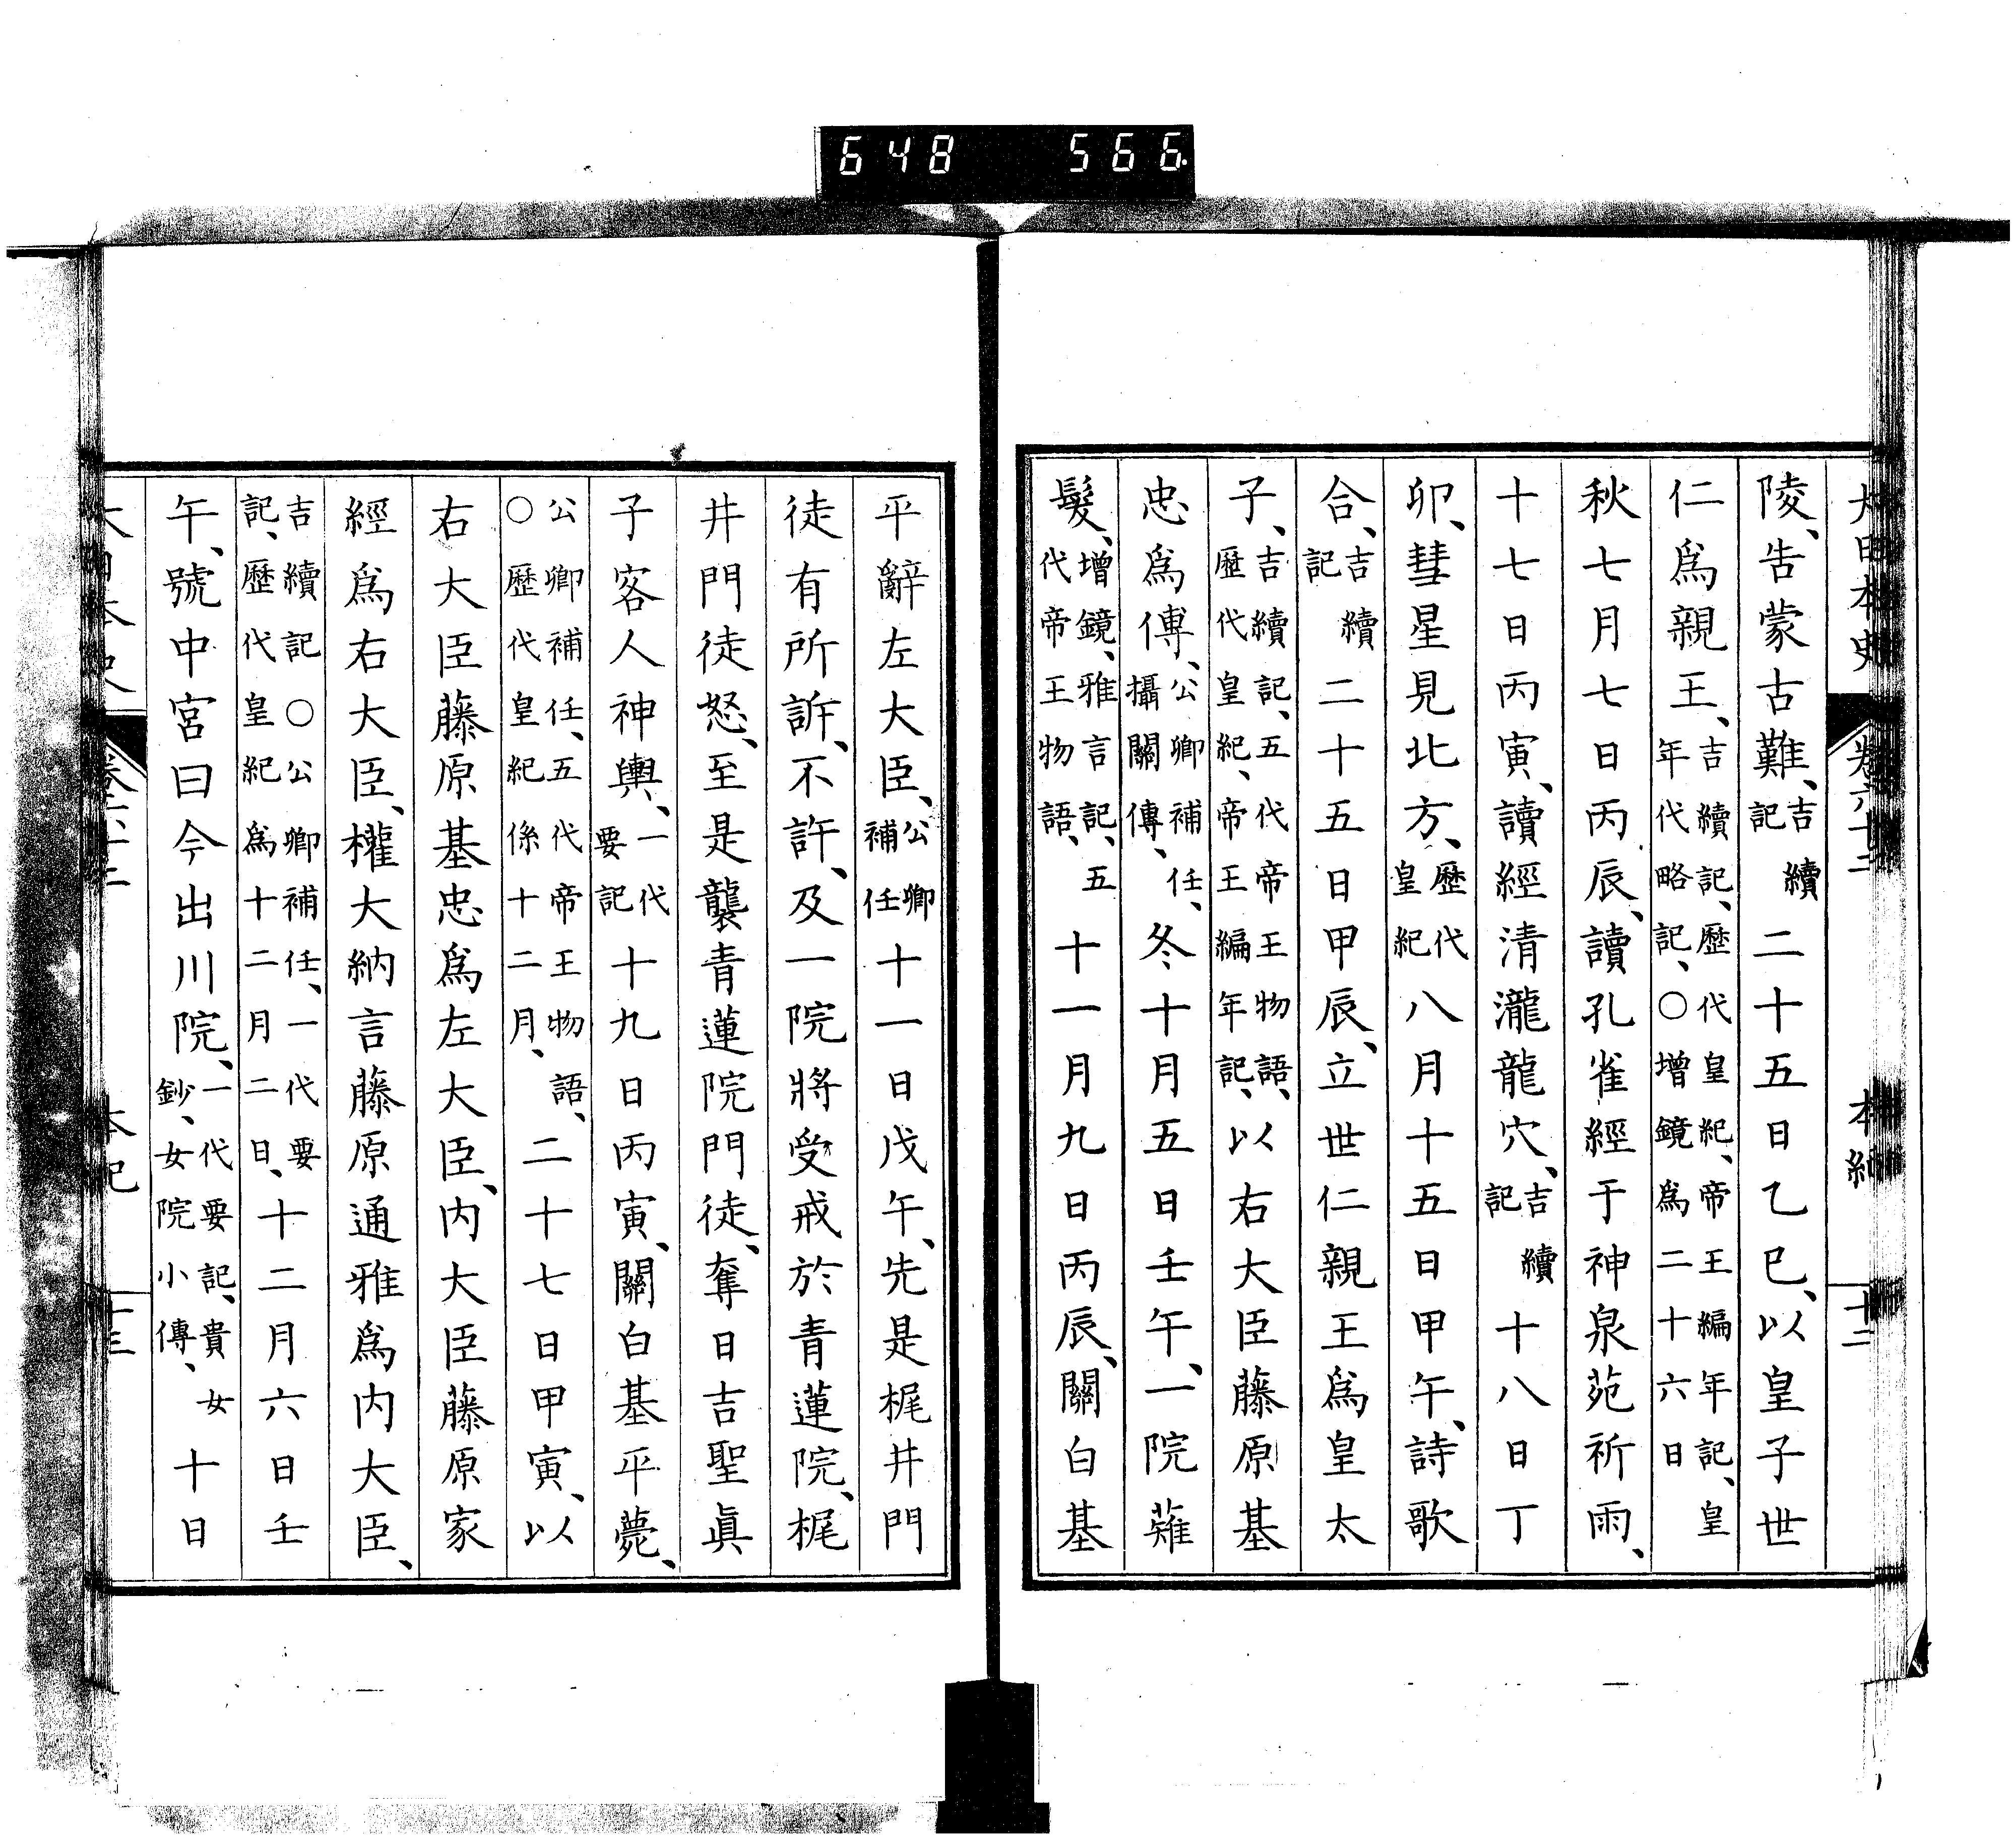 648 566
大日本史 卷六十二 本紀 十二
陵、告蒙古難、吉續記二十五日乙巳、以皇子世
仁爲親王、吉續記、歷代皇紀、帝王編年記、皇年代略記、○增鏡爲二十六日
秋七月七日丙辰、讀孔雀經于神泉苑祈雨、
十七日丙寅、讀經清瀧龍穴、吉續記十八日丁
卯、彗星見北方、歷代皇紀八月十五日甲午、詩歌
合、吉續記二十五日甲辰、立世仁親王爲皇太
子、吉續記、五代帝王物語、歷代皇紀、帝王編年記、以右大臣藤原基
忠爲傅、公卿補任、攝關傳、冬十月五日壬午、一院薙
髮、增鏡、雅言記、五代帝王物語、十一月九日丙辰、關白基
平辭左大臣、公卿補任十一日戊午、先是梶井門
徒有所訴、不許、及一院將受戒於青蓮院、梶
井門徒怒、至是襲青蓮院門徒、奪日吉聖眞
子客人神輿、一代要記十九日丙寅、關白基平薨、
公卿補任、五代帝王物語、○歷代皇紀係十二月、二十七日甲寅、以
右大臣藤原基忠爲左大臣、内大臣藤原家
經爲右大臣、權大納言藤原通雅爲内大臣、
吉續記○公卿補任、一代要記、歷代皇紀爲十二月二日、十二月六日壬
午、號中宮曰今出川院、一代要記、貴女鈔、女院小傳、十日
大日本史 卷六十二 本紀 十三